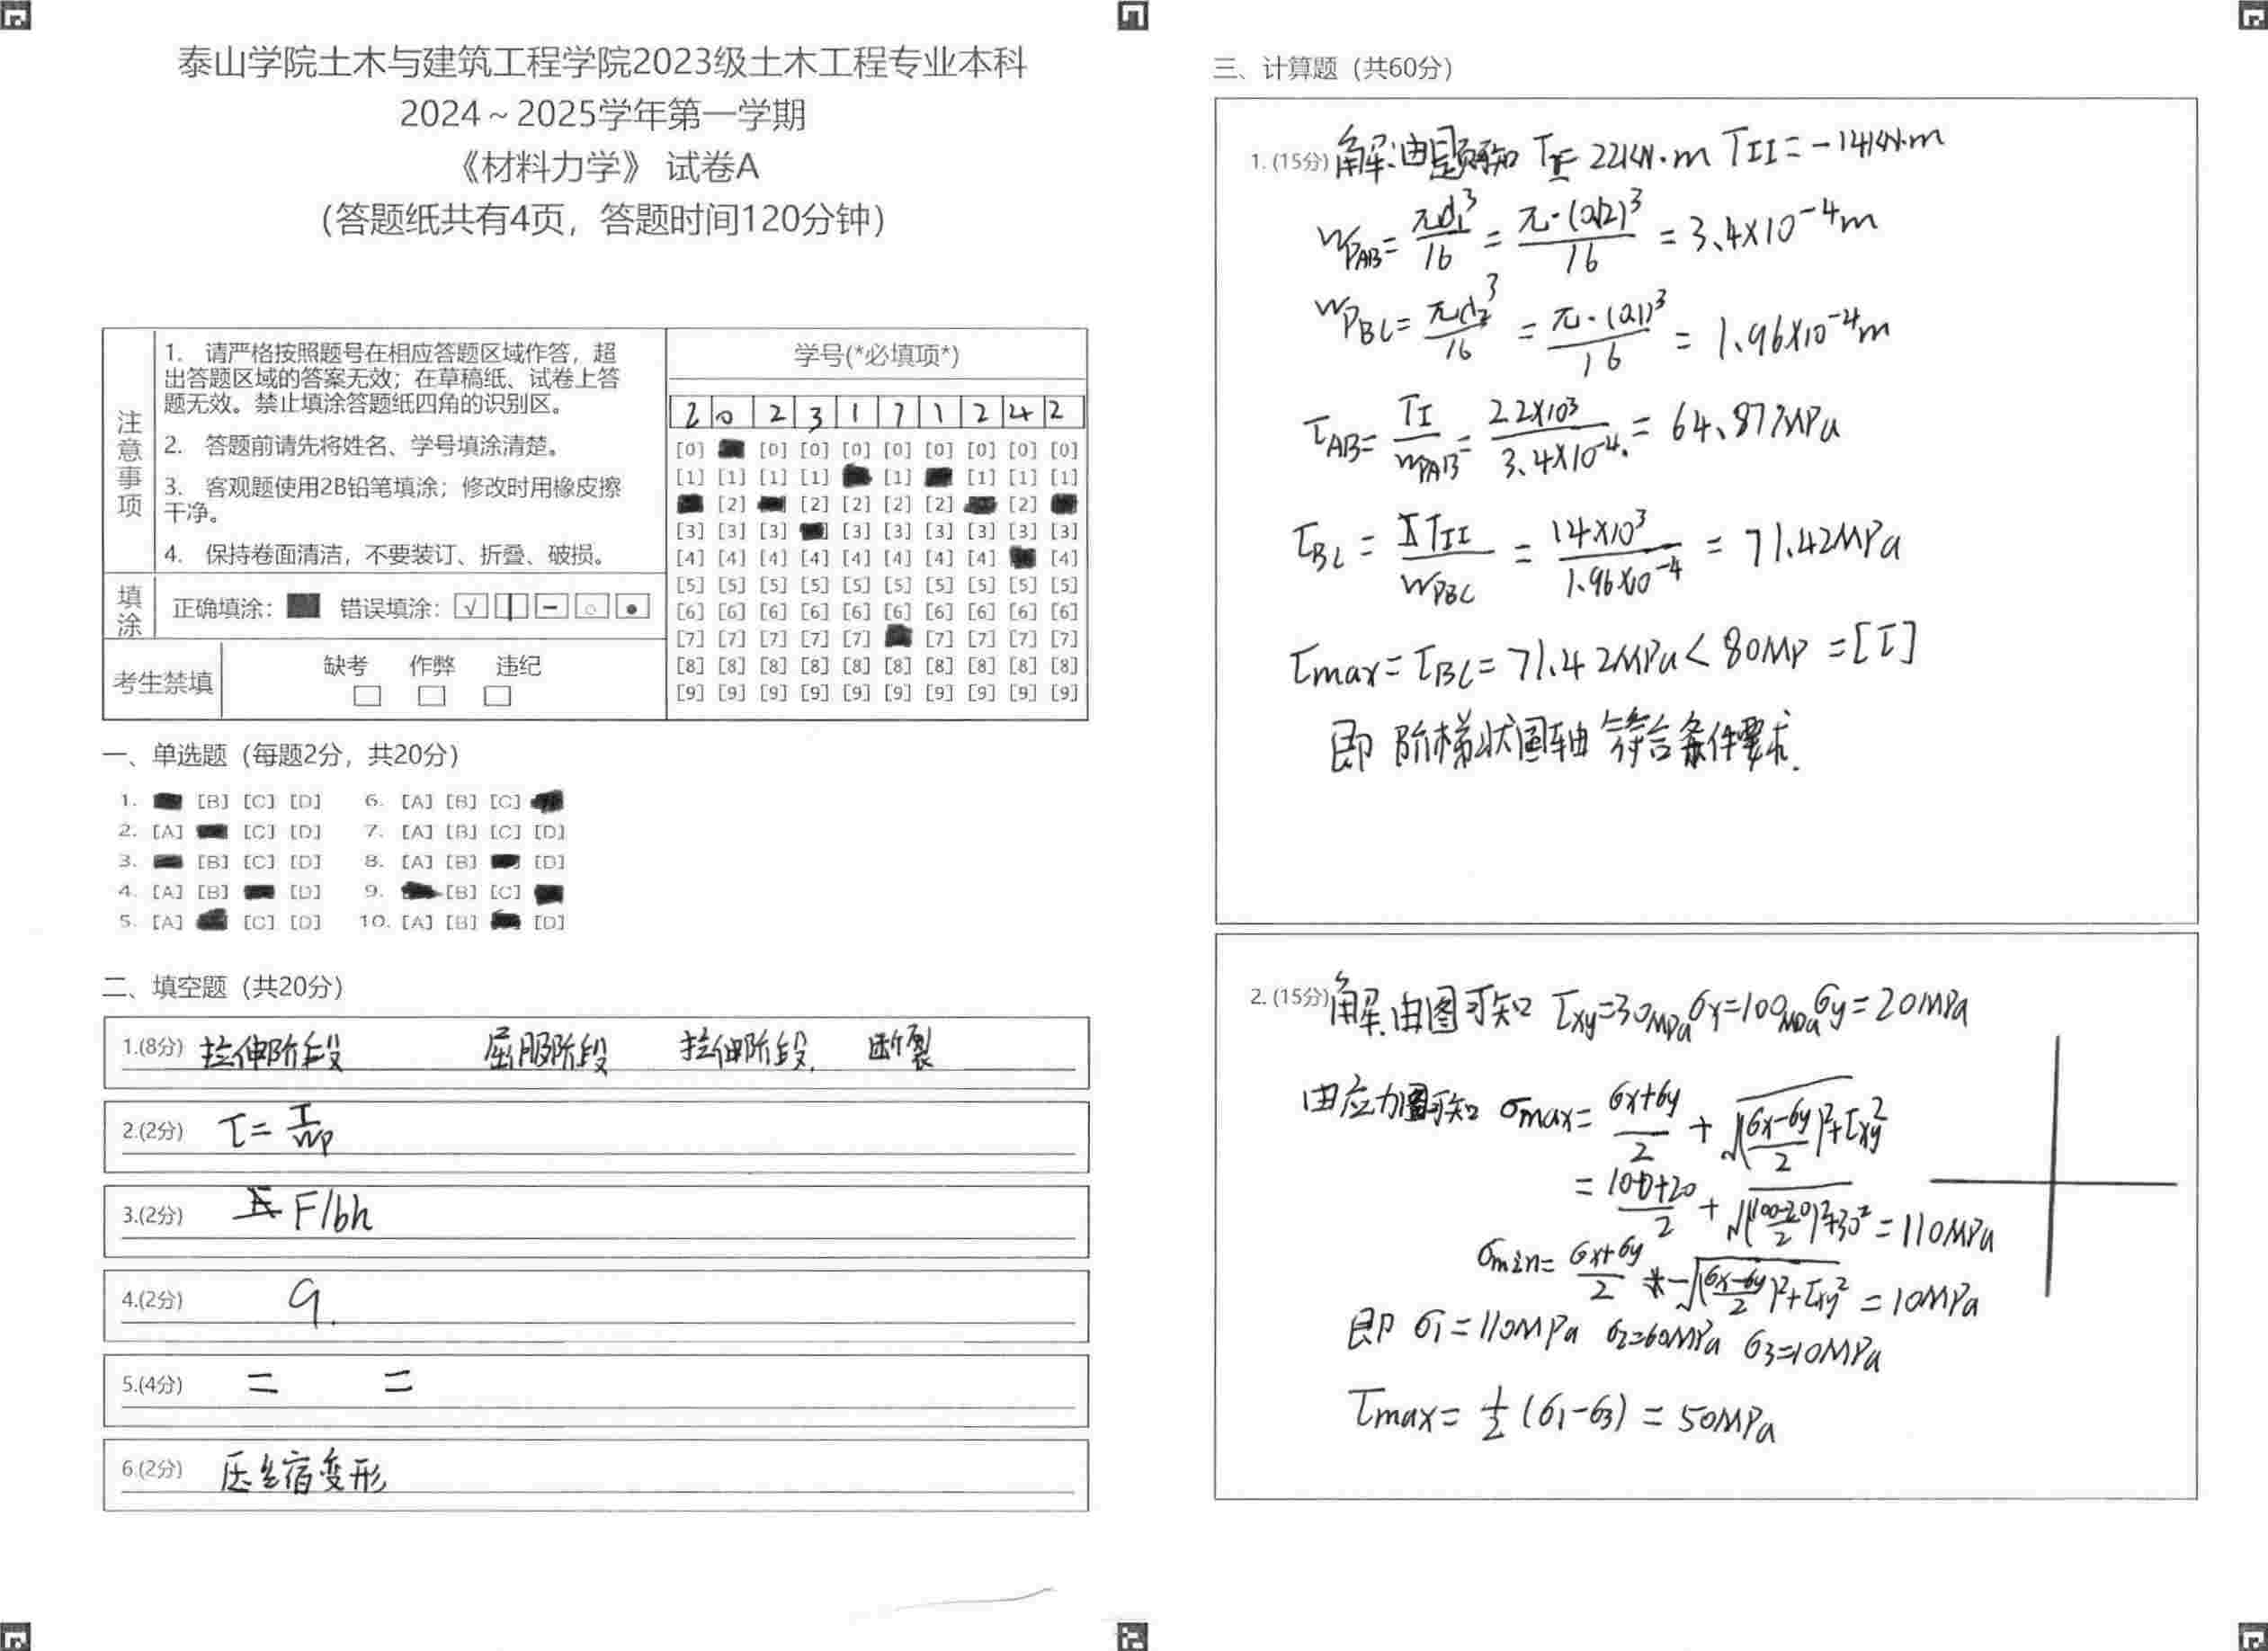 泰山学院土木与建筑工程学院2023级土木工程专业本科
2024～2025学年第一学期
《材料力学》 试卷A
（答题纸共有4页，答题时间120分钟）
注意事项
1. 请严格按照题号在相应答题区域作答，超
出答题区域的答案无效；在草稿纸、试卷上答
题无效。禁止填涂答题纸四角的识别区。
2. 答题前请先将姓名、学号填涂清楚。
3. 客观题使用2B铅笔填涂；修改时用橡皮擦
干净。
4. 保持卷面清洁，不要装订、折叠、破损。
填涂
正确填涂： 错误填涂：
考生禁填
缺考 作弊 违纪
学号(*必填项*)
2 0 2 3 1 7 1 2 4 2
[0] [0] [0] [0] [0] [0] [0] [0] [0]
[1] [1] [1] [1] [1] [1] [1] [1]
[2] [2] [2] [2] [2] [2]
[3] [3] [3] [3] [3] [3] [3] [3] [3]
[4] [4] [4] [4] [4] [4] [4] [4] [4]
[5] [5] [5] [5] [5] [5] [5] [5] [5] [5]
[6] [6] [6] [6] [6] [6] [6] [6] [6] [6]
[7] [7] [7] [7] [7] [7] [7] [7] [7]
[8] [8] [8] [8] [8] [8] [8] [8] [8] [8]
[9] [9] [9] [9] [9] [9] [9] [9] [9] [9]
一、单选题（每题2分，共20分）
1. [B] [C] [D] 6. [A] [B] [C]
2. [A] [C] [D] 7. [A] [B] [C] [D]
3. [B] [C] [D] 8. [A] [B] [D]
4. [A] [B] [D] 9. [B] [C]
5. [A] [C] [D] 10. [A] [B] [D]
二、填空题（共20分）
1.(8分) 拉伸阶段 屈服阶段 拉伸阶段. 断裂
2.(2分) τ=T/Wp
3.(2分) F/bh
4.(2分) 9.
5.(4分) 二 二
6.(2分) 压缩变形
三、计算题（共60分）
1. (15分) 解:由题可知 TI=22KN·m TII=-14KN·m
WPAB=πd₁³/16=π·(0.12)³/16=3.4×10⁻⁴m
WPBC=πd₂³/16=π·(0.1)³/16=1.96×10⁻⁴m
τAB=TI/WPAB=22×10³/3.4×10⁻⁴=64.87MPa
τBC=TII/WPBC=14×10³/1.96×10⁻⁴=71.42MPa
τmax=τBC=71.42MPa<80MP=[τ]
即 阶梯状圆轴 符合条件要求.
2. (15分) 解.由图可知 τxy=30MPa σx=100MPa σy=20MPa
由应力圆可知 σmax=(σx+σy)/2+√((σx-σy)/2)²+τxy²
=(100+20)/2+√((100-20)/2)²+30²=110MPa
σmin=(σx+σy)/2-√((σx-σy)/2)²+τxy²=10MPa
即 σ1=110MPa σ2=60MPa σ3=10MPa
τmax=1/2(σ1-σ3)=50MPa